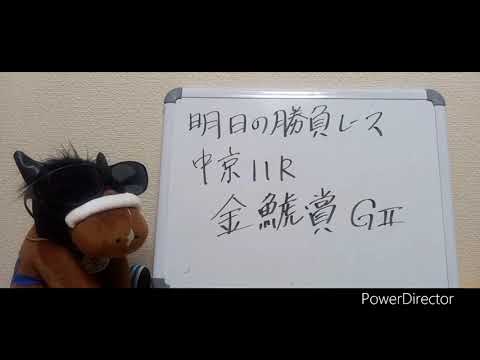 明日の勝負レース
中京11R
金鯱賞 GⅡ
PowerDirector